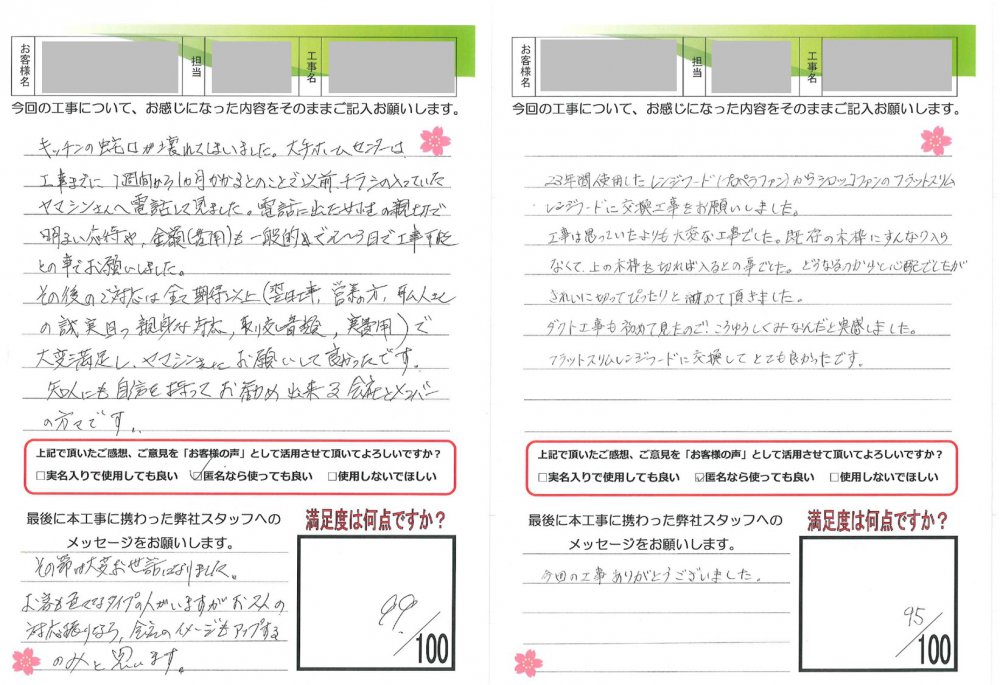 お客様名
担当
工事名
今回の工事について、お感じになった内容をそのままご記入お願いします。
キッチンの蛇口が壊れてしまいました。大手ホームセンターは
工事までに1週間から1ヵ月かかるとのことで以前チラシの入っていた
ヤマシンさんへ電話して見ました。電話に出た女性の親切で
明るい応待や、金額(費用)も一般的
日で工事可能
との事でお願いしました。
その後のご対応は全て期待以上(翌日工事、営業の方、職人さん
の誠実且つ親身な対応、取り外し音額、実費用)で
大変満足し、ヤマシンさんにお願いして良かったです。
知人にも自信を持ってお勧め出来る会社とメンバー
の方々です。
上記で頂いたご感想、ご意見を「お客様の声」として活用させて頂いてよろしいですか?
□実名入りで使用しても良い ☑匿名なら使っても良い □使用しないでほしい
最後に本工事に携わった弊社スタッフへの
メッセージをお願いします。
その節は大変お世話になりました。
お客も色々なタイプの人がいますがお二人の
対応振りなら、会社のイメージもアップする
のみと思います。
満足度は何点ですか?
99/100
お客様名
担当
工事名
今回の工事について、お感じになった内容をそのままご記入お願いします。
23年間使用したレンジフード(プロペラファン)からシロッコファンのフラットスリム
レンジフードに交換工事をお願いしました。
工事は思っていたよりも大変な工事でした。既存の木枠にすんなり入ら
なくて、上の木枠を切れば入るとの事でした。どうなるのかなと心配でしたが
きれいに切ってぴったりと納めて頂きました。
ダクト工事も初めて見たので!こうゆうしくみなんだと実感しました。
フラットスリムレンジフードに交換してとても良かったです。
上記で頂いたご感想、ご意見を「お客様の声」として活用させて頂いてよろしいですか?
□実名入りで使用しても良い ☑匿名なら使っても良い □使用しないでほしい
最後に本工事に携わった弊社スタッフへの
メッセージをお願いします。
今回の工事ありがとうございました。
満足度は何点ですか?
95/100